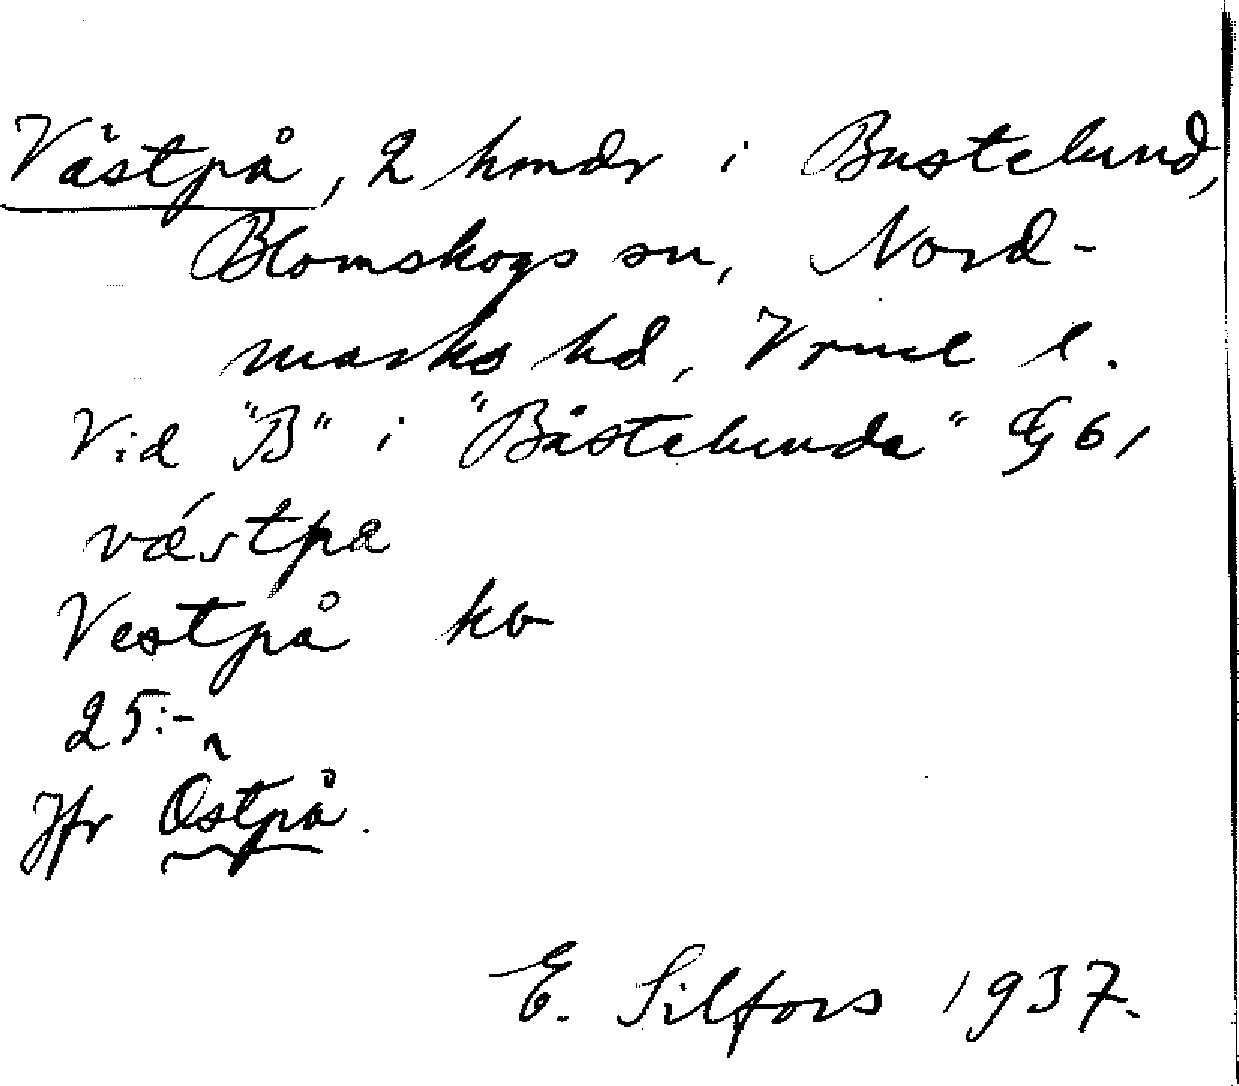 Västpå, 2 hmdr i Bustelund,
Blomskogs sn, Nord-
marks hd, Vrml l.
Vid "B" i "Båstelunda" G 6,
västpa
Vestpå kb
25:-
Jfr Östpå.
E. Silfors 1937.